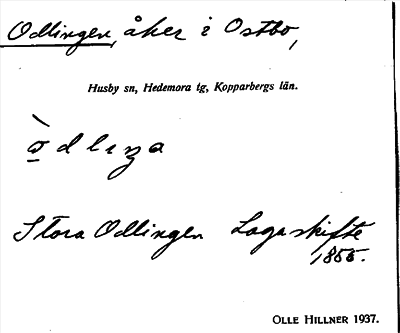 Odlingen, åker i Ostbo,
Husby sn, Hedemora tg, Kopparbergs län.
Stora Odlingen Laga skifte
1855.
OLLE HILLNER 1937.